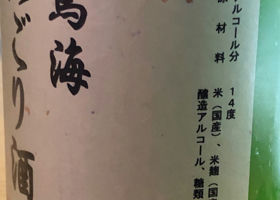 アルコール分
14度
原材料
米（国産）、米麹（国
醸造アルコール、糖類
鳥海
にごり酒